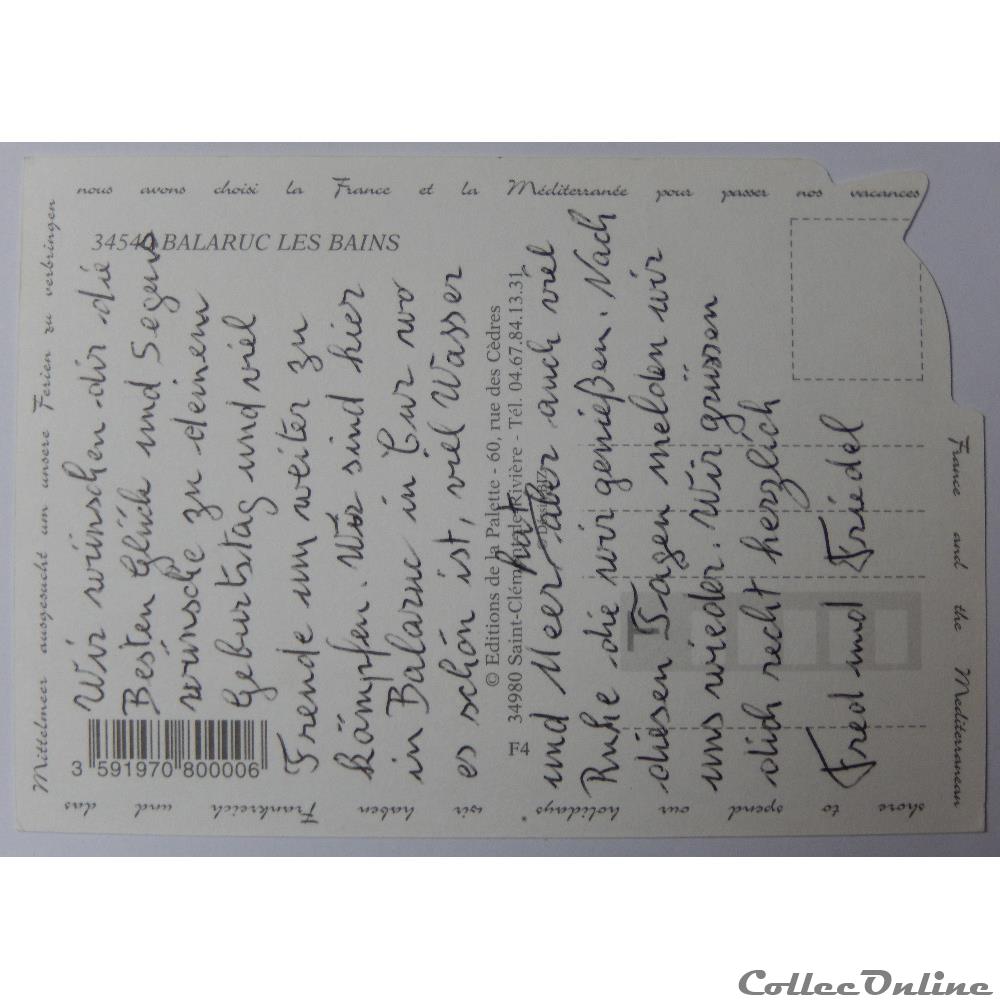 nous avons choisi la France et la Méditerranée pour passer nos vacances
34540 BALARUC LES BAINS
Wir wünschen dir die
Besten Glück und Segens
wünsche zu deinem
Geburtstag und viel
Freude um weiter zu
kämpfen. Wir sind hier
in Balaruc in Cur wo
es schön ist, viel Wasser
und Meer hat aber auch viel
Ruhe die wir genießen. Nach
diesen Tagen melden wir
uns wieder. Wir grüssen
dich recht herzlich
Fred und Friedel
3 591970 800006
F4
© Editions de la Palette - 60, rue des Cèdres
34980 Saint-Clément-de-Rivière - Tél. 04.67.84.13.31
France and the Mediterranean
shore to spend our holidays * wir haben Frankreich und das
Mittelmeer ausgesucht um unsere Ferien zu verbringen
CollecOnline